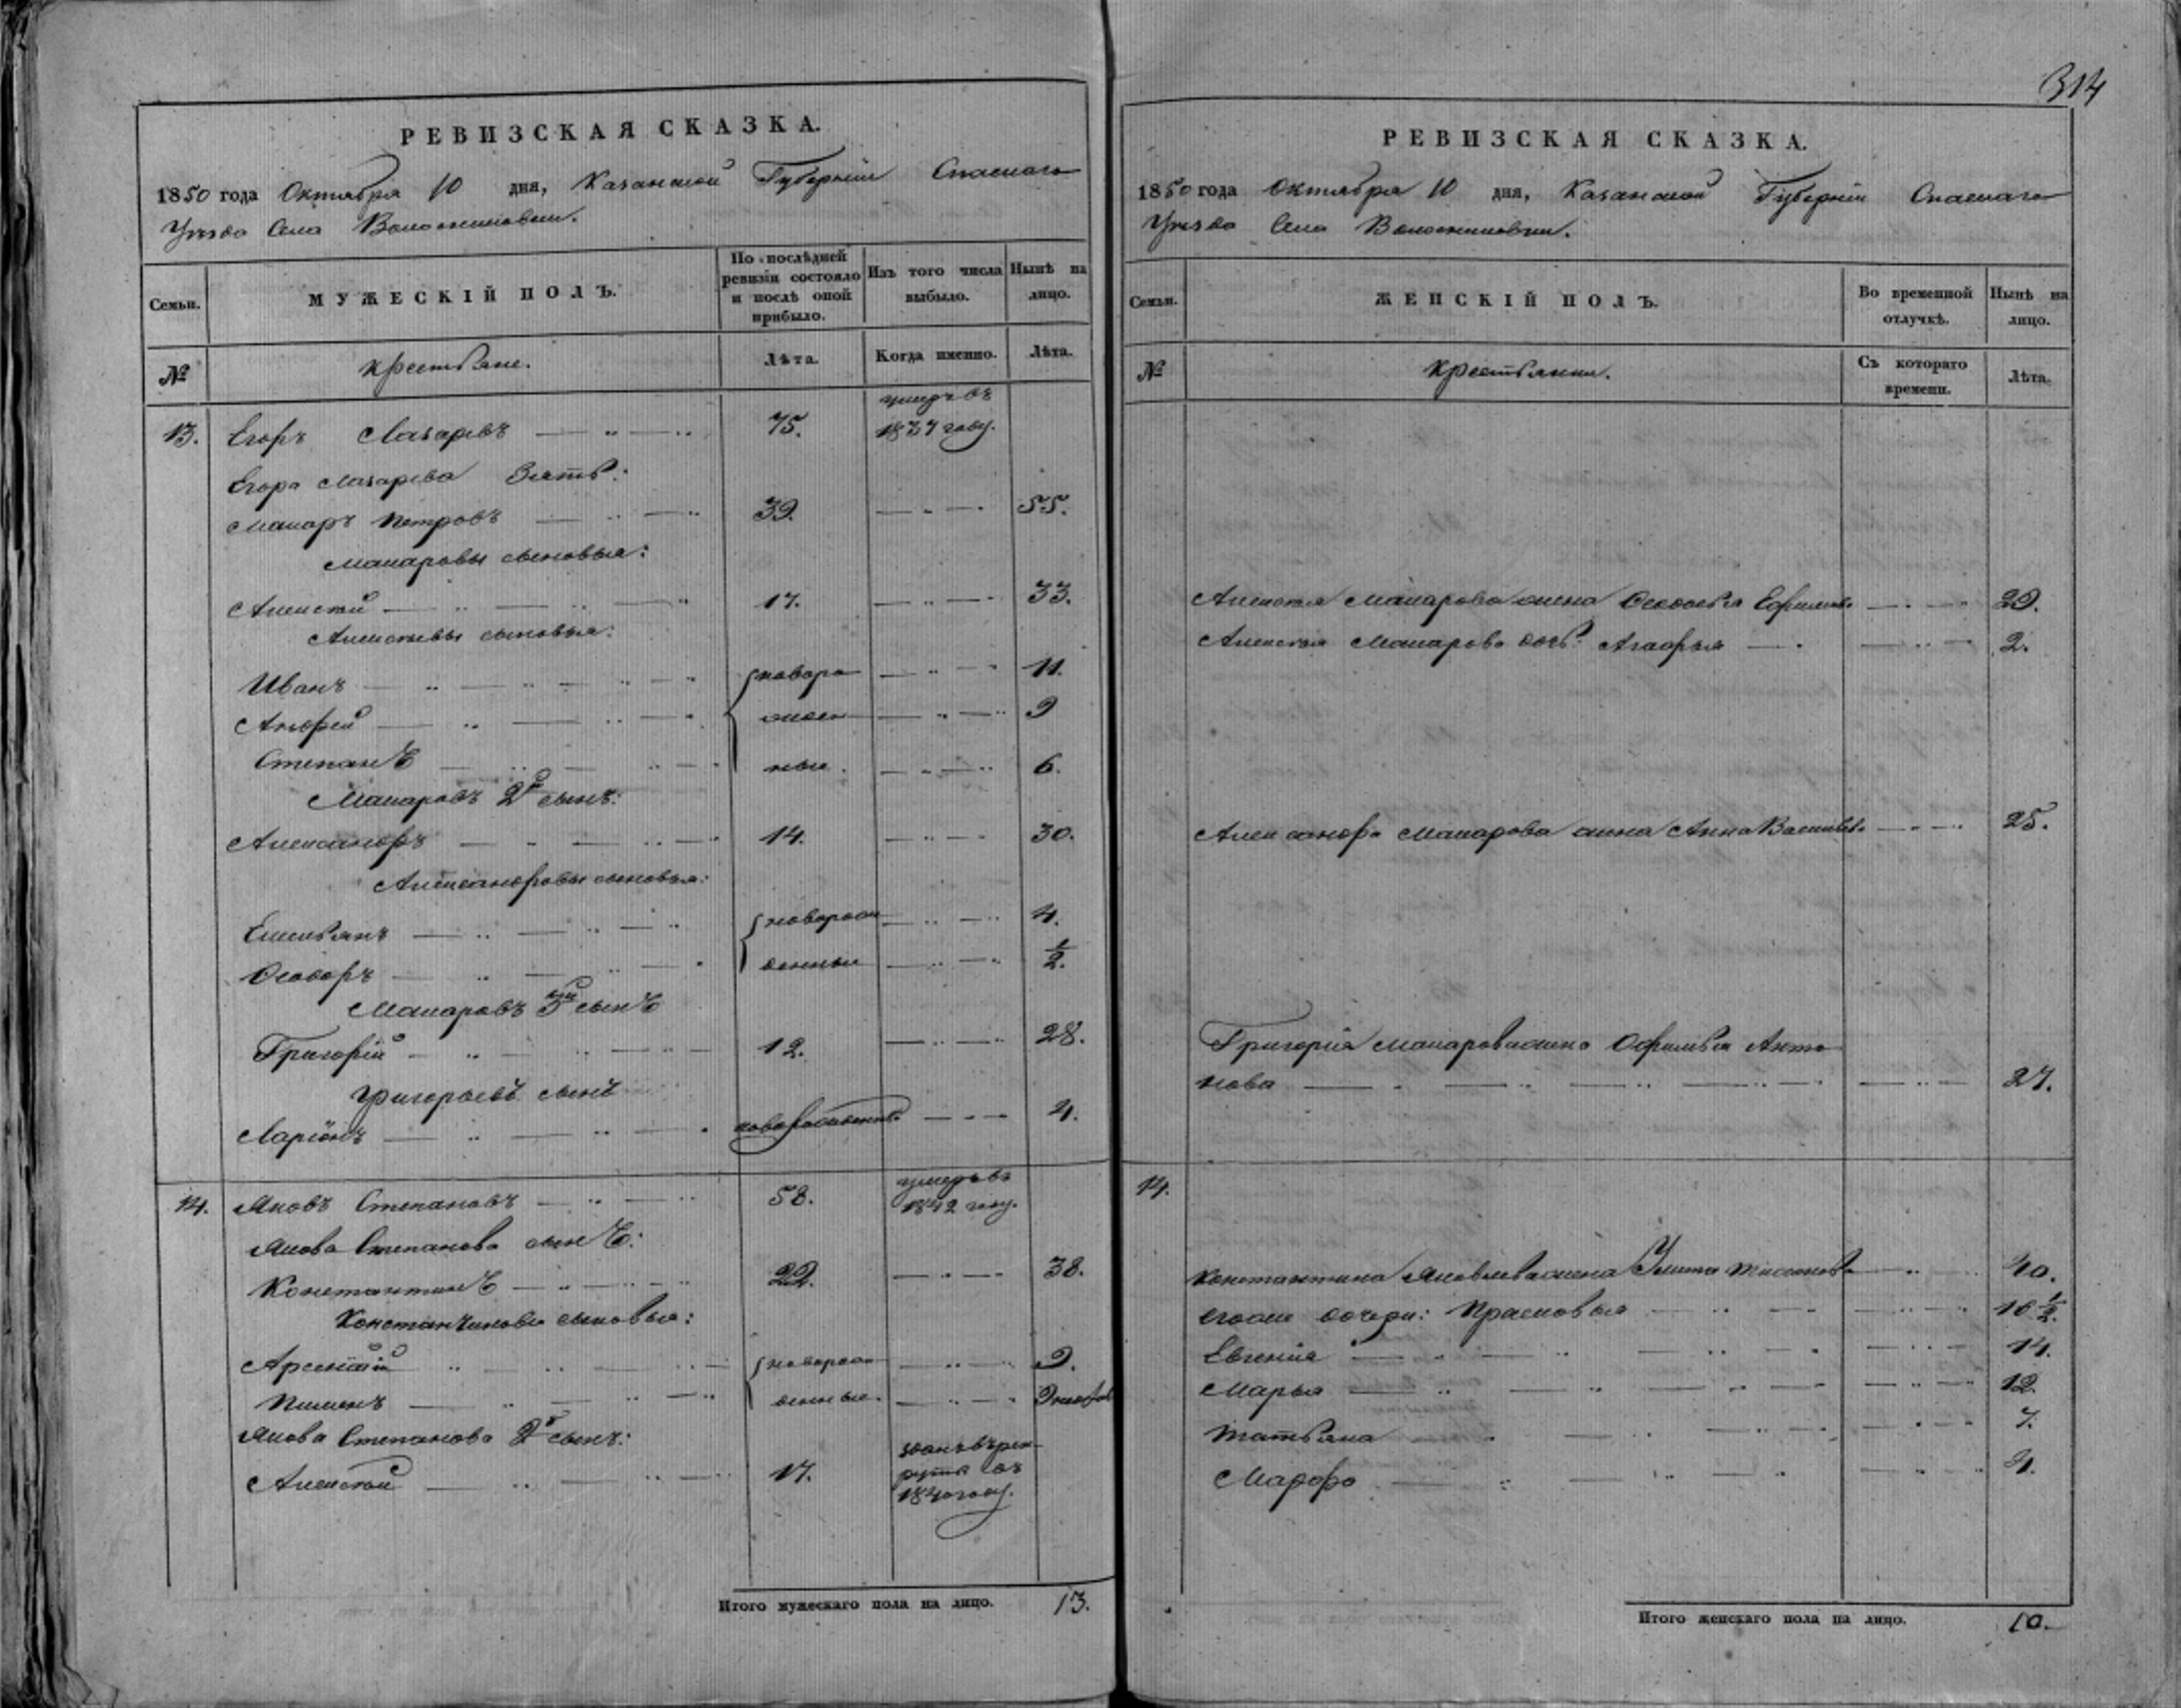 РЕВИЗСКАЯ СКАЗКА.
1850 года Октября 10 дня, Казанской Губернии Спаскаго
Уезда Села
Семьи.
МУЖЕСКІЙ ПОЛЪ.
По послѣдней ревизіи состояло и послѣ оной прибыло.
Изъ того числа выбыло.
Нынѣ на лицо.
№
крестьяне.
Лѣта.
Когда именно.
Лѣта.
13. Егоръ Лазаревъ 75. умеръ въ
году.
Егора Лазарева Зять:
Макаръ Петровъ 39. 55.
Макаровы сыновья:
Алексей 17. 33.
Алексеевы сыновья:
Иванъ новоро 11.
Андрей жден 9
Степанъ ные. 6.
Макаровъ 2й сынъ:
Александръ 14. 30.
Александровы сыновья:
Емельянъ новорож 4.
Ѳеодоръ денные 1/2.
Макаровъ 3ий сынъ
Григорій 12. 28.
Григорьевъ сынъ
Ларіонъ новорожденный 4.
14. Яковъ Степановъ 58. умеръ въ
1842 году.
Якова Степанова сынъ:
Константинъ 22. 38.
Константиновы сыновья:
Арсентій новорож 9.
Пименъ денные.
Якова Степанова 2й сынъ:
Алексей 17. въ рек
руты въ
1840 году.
Итого мужескаго пола на лицо. 13.
314
РЕВИЗСКАЯ СКАЗКА.
1850 года Октября 10 дня, Казанской Губерніи Спаскаго
Уезда Села
Семьи.
ЖЕНСКІЙ ПОЛЪ.
Во временной отлучкѣ.
Нынѣ на лицо.
№
крестьянки.
Съ котораго времени.
Лѣта.
Алексея Макарова жена Ѳедосья Ефимова 29.
Алексея Макарова дочь Агафья 2.
Александра Макарова жена Анна Васильева 25.
Григорія Макарова жена Офимья Анто
нова 27.
14.
Константина Яковлева жена Улита 40.
его же дочери: Прасковья 16 1/2.
Евгенія 14.
Марья 12.
Татьяна 7.
Марфа 4.
Итого женскаго пола на лицо. 10.